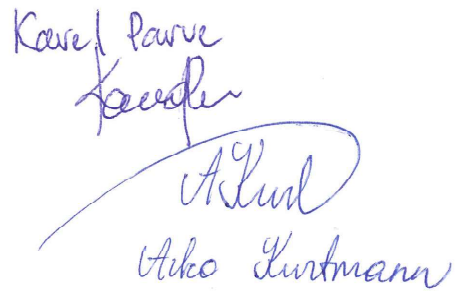 Karel Parve
AKurl
Aiko Kurtmann